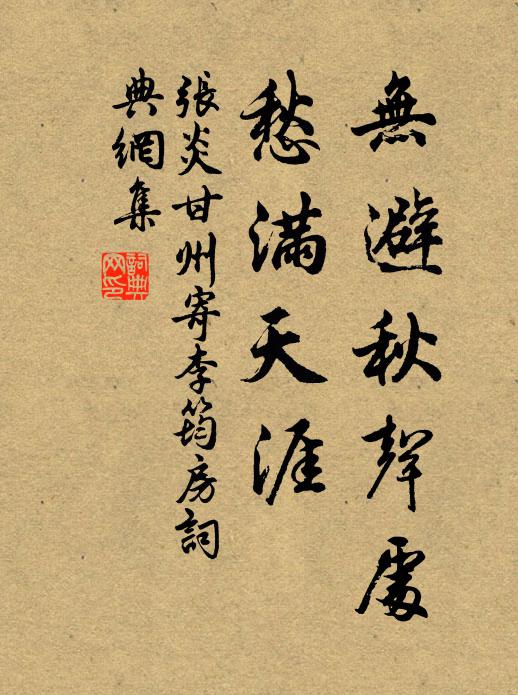 無避秋聲處
愁滿天涯
張炎甘州寄李筠房詞
典網集
詞典網印